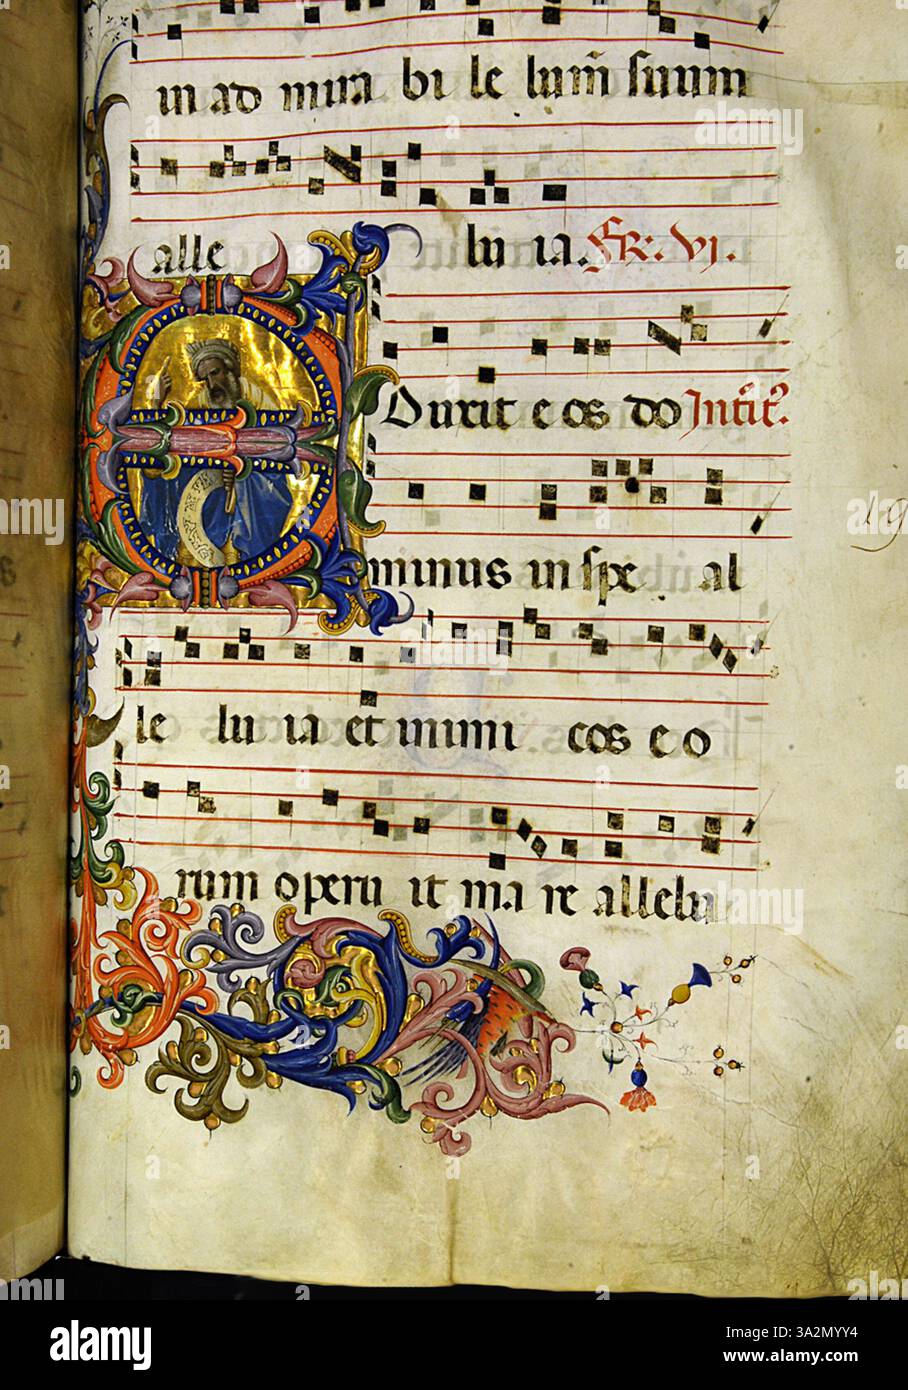 in ad mira bi le lum̄ suum
alle lu ia. FR. VI.
E Duxit e os do Introit.
minus in spe al
le lu ia et inimi cos e o
rum operu it ma re allelu
19
alamy
Image ID: 3A2MYY4
www.alamy.com